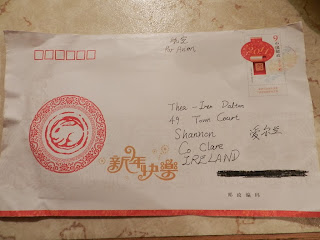 航空
Par Avion
Thea-Iren Dalton
49 Town Court
Shannon
爱尔兰
Co. Clare
IRELAND
新年快樂
邮政编码